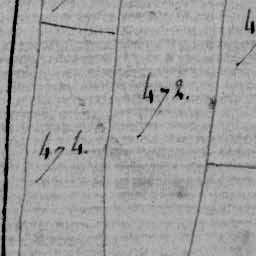 472.
474.